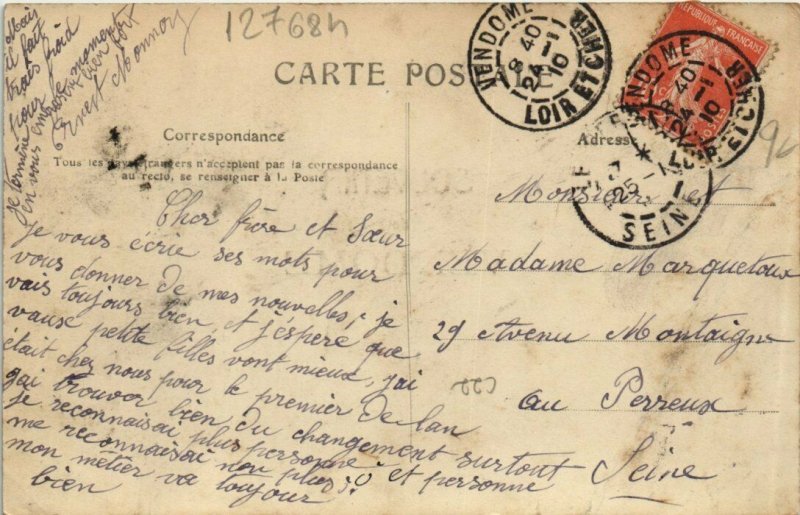 12768h
CARTE POSTALE
VENDOME
8 40
24 -1
10
LOIR ET CHER
VENDOME
8 40
24 -1
10
LOIR ET CHER
REPUBLIQUE FRANÇAISE
POSTES
25 -1
SEINE
Correspondance
Tous les pays étrangers n'acceptent pas la correspondance
au recto, se renseigner à la Poste
Adresse
Cher frère et Sœur
Je vous écrie ses mots pour
vous donner de mes nouvelles, je
vais toujours bien, et j'éspère que
vause petite filles vont mieux, j'ai
était chez nous pour le premier de lan
j'ai trouver bien du changement surtout
je reconnaisai plus personne et personne
me reconnaisai non plus
mon métier va toujour
bien
Mais
il fait
trais froid
pour
moment
Je termine
en vous
bien fort
Ernest
Monsieur et
Madame Marquetoux
29 Avenu Montaigne
au Perreux
Seine